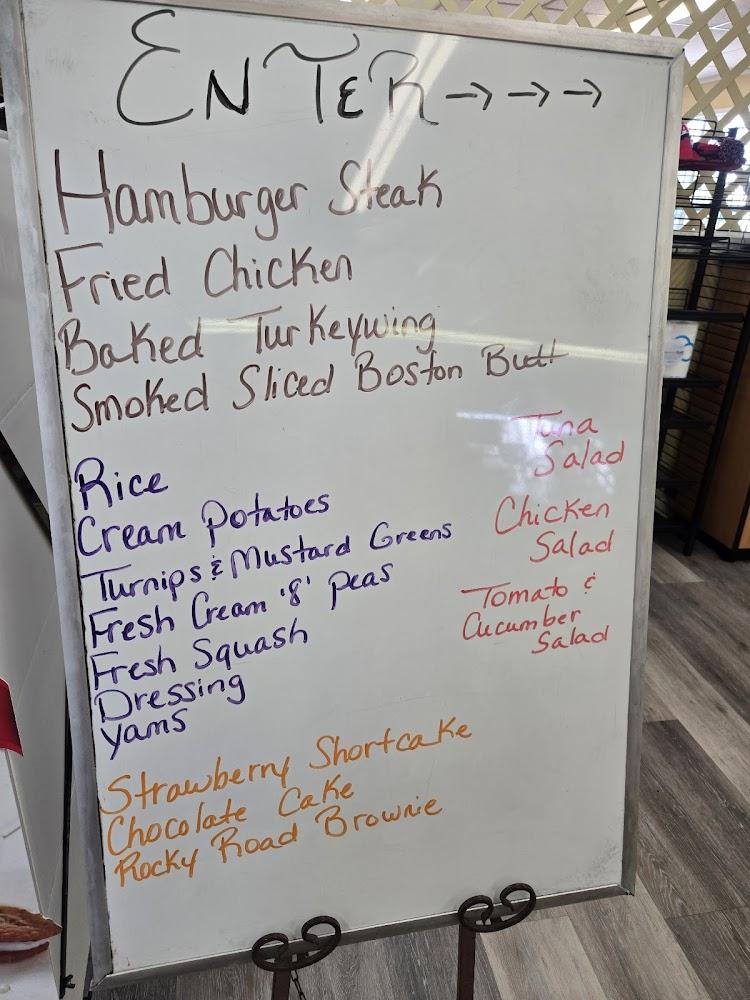 ENTER→→→
Hamburger Steak
Fried Chicken
Baked Turkeywing
Smoked Sliced Boston Butt
Rice
Cream Potatoes
Turnips & Mustard Greens
Fresh Cream '8' Peas
Fresh Squash
Dressing
Yams
Tuna
Salad
Chicken
Salad
Tomato &
Cucumber
Salad
Strawberry Shortcake
Chocolate Cake
Rocky Road Brownie